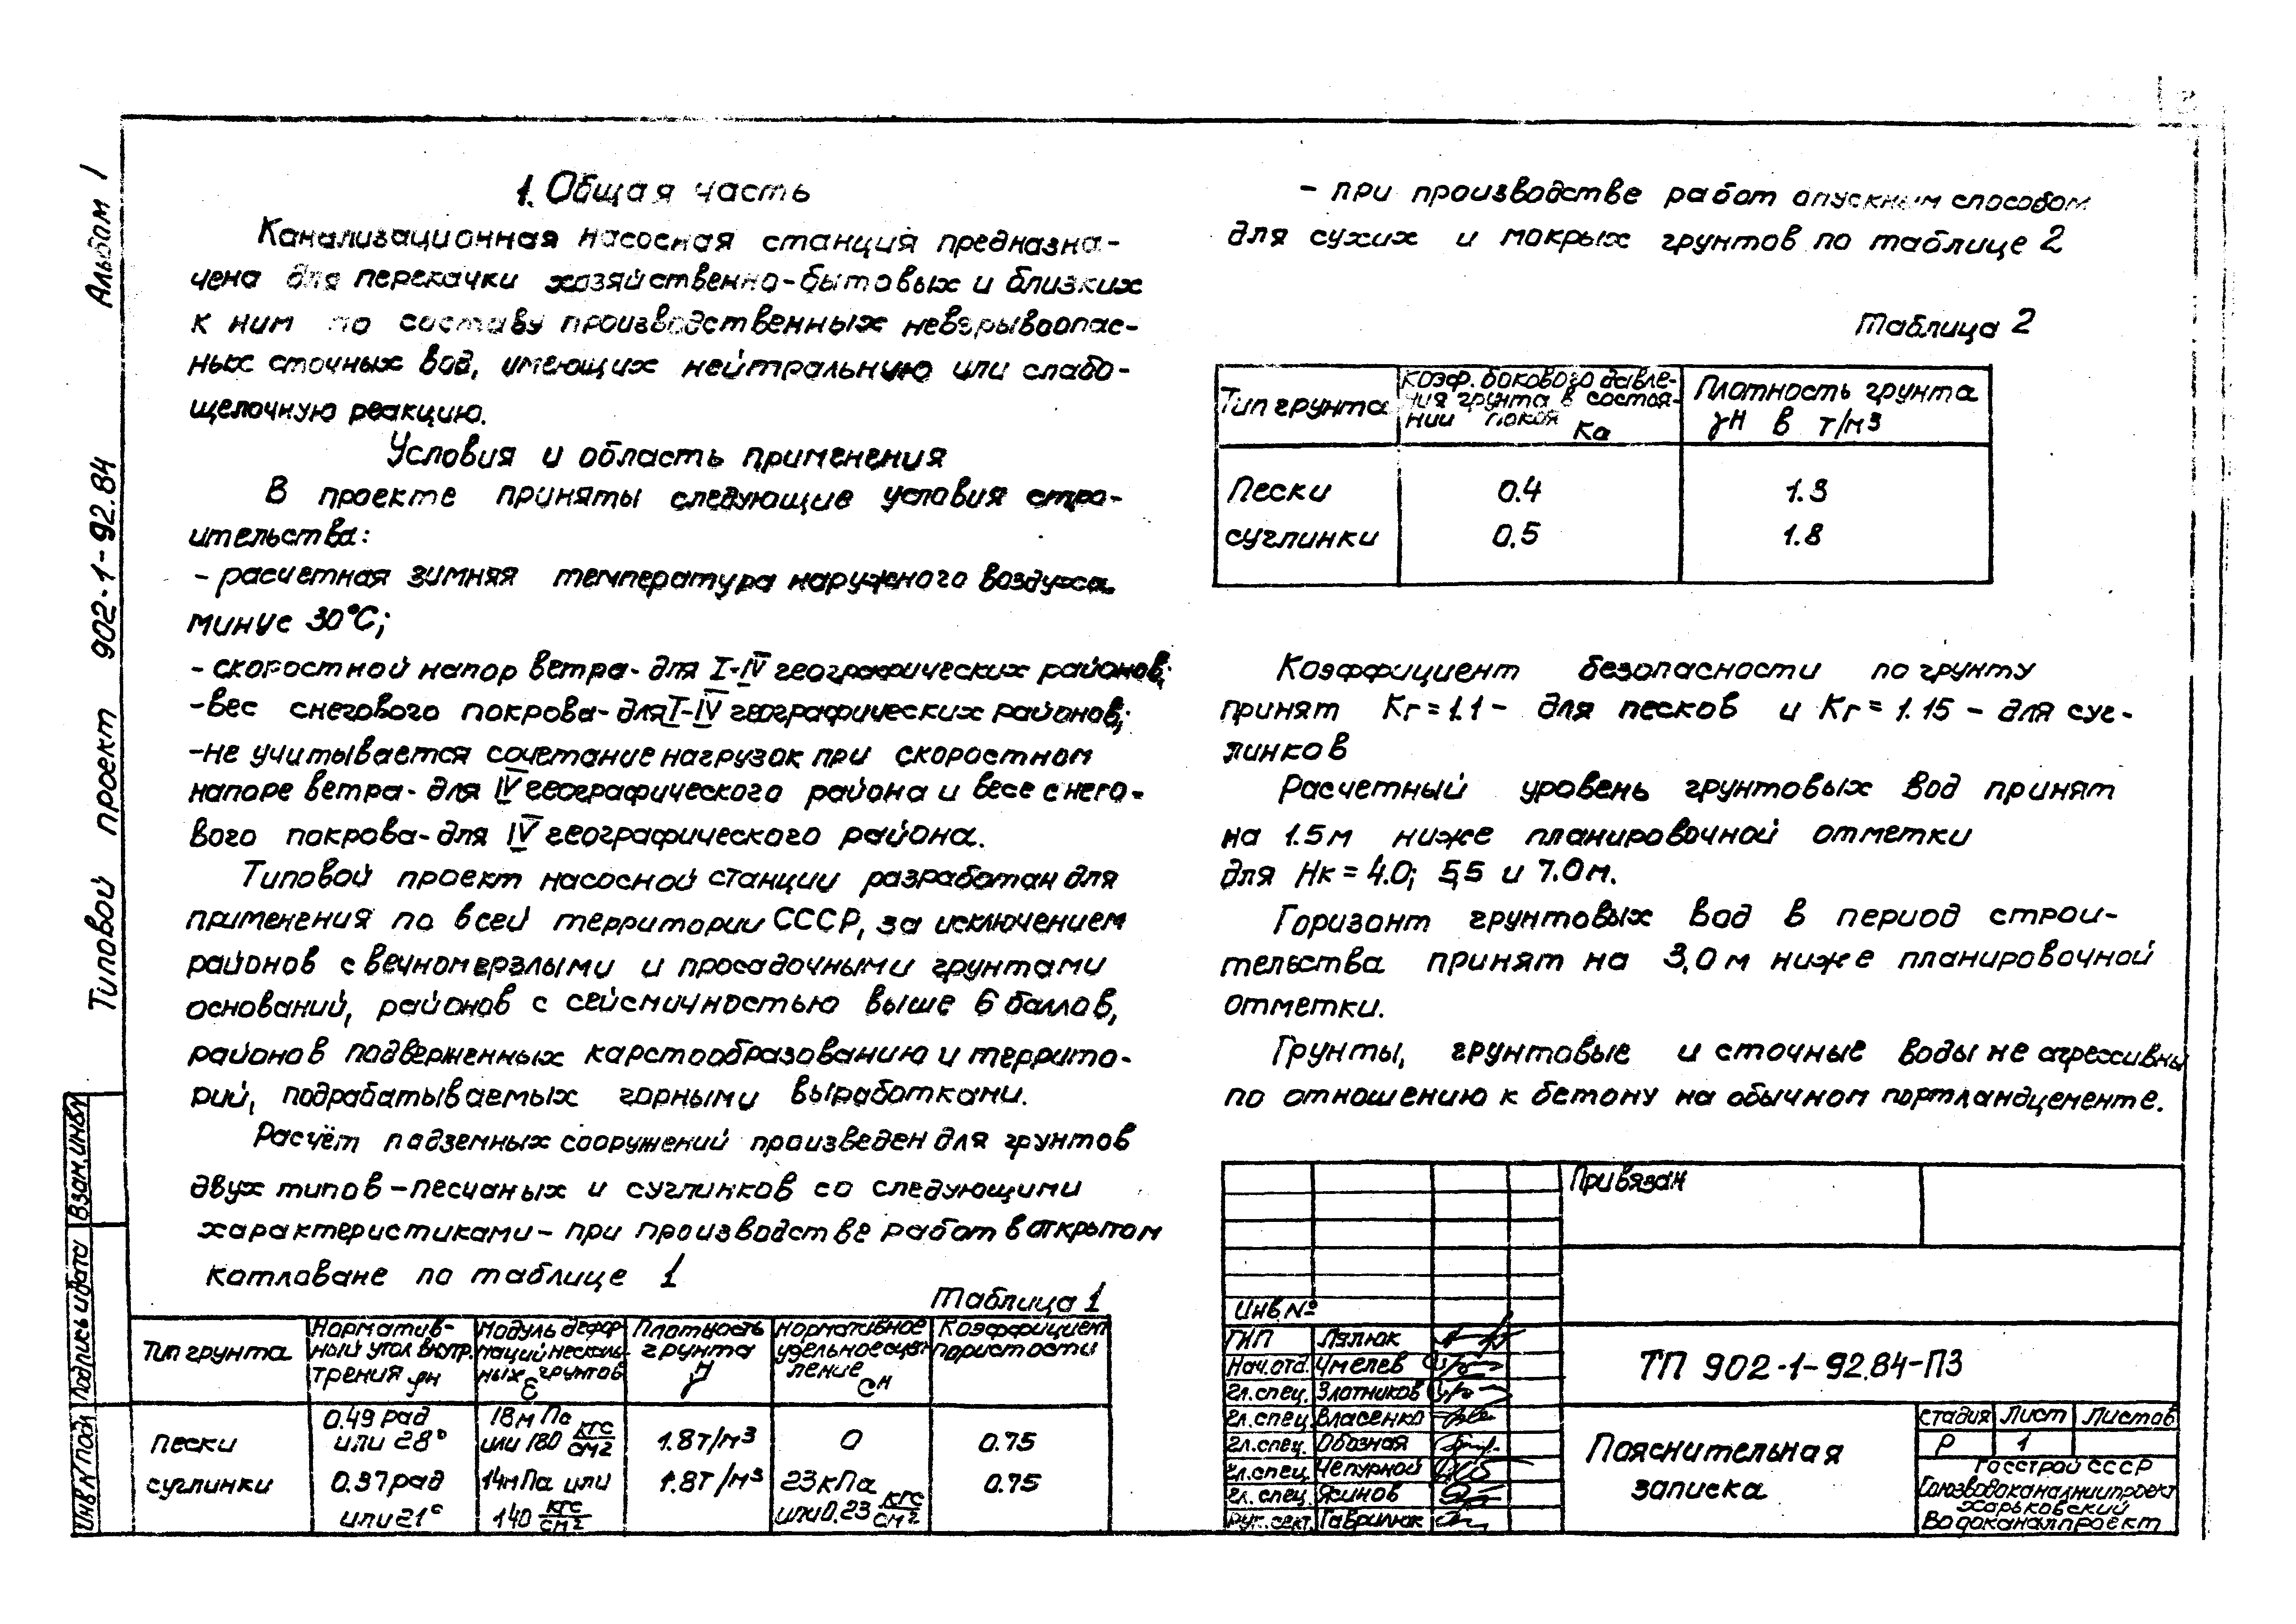 Альбом 1
Типовой проект 902-1-92.84
1. Общая часть
Канализационная насосная станция предназна-
чена для перекачки хозяйственно-бытовых и близких
к ним по составу производственных невзрывоопас-
ных сточных вод, имеющих нейтральную или слабо-
щелочную реакцию.
Условия и область применения
В проекте приняты следующие условия стро-
ительства:
- расчетная зимняя температура наружного воздуха
минус 30°С;
- скоростной напор ветра- для I-IV географических районов;
-вес снегового покрова- для I-IV географических районов;
-не учитывается сочетание нагрузок при скоростном
напоре ветра- для IV географического района и весе снего-
вого покрова- для IV географического района.
Типовой проект насосной станции разработан для
применения по всей территории СССР, за исключением
районов с вечномерзлыми и просадочными грунтами
оснований, районов с сейсмичностью выше 6 баллов,
районов подверженных карстообразованию и террито-
рий, подрабатываемых горными выработками.
Расчёт подземных сооружений произведен для грунтов
двух типов – песчаных и суглинков со следующими
характеристиками – при производстве работ в открытом
котловане по таблице 1
Таблица 1
Тип грунта
Норматив-
ный угол внутр.
трения φн
Модуль дефор-
маций несколь-
ных грунтов
E
Плотность
грунта
γн
Нормативное
удельное сцеп-
ление
Cн
Коэффициент
пористости
пески
0.49 рад
или 28°
18м Па
или 180 кгс/см2
1.8т/м3
0
0.75
суглинки
0.37рад
или 21°
14мПа или
140 кгс/см2
1.8т/м3
23кПа
или 0.23 кгс/см2
0.75
- при производстве работ опускным способом
для сухих и мокрых грунтов по таблице 2
Таблица 2
Тип грунта
Коэф. бокового давле-
ния грунта в состоя-
нии покоя Ка
Плотность грунта
γн в т/м3
Пески
0.4
1.3
суглинки
0.5
1.8
Коэффициент безопасности по грунту
принят Кг=1.1 – для песков и Кг = 1.15 – для суг-
линков
Расчетный уровень грунтовых вод принят
на 1.5м ниже планировочной отметки
для Нк = 4.0; 5,5 и 7.0м.
Горизонт грунтовых вод в период строи-
тельства принят на 3,0м ниже планировочной
отметки.
Грунты, грунтовые и сточные воды не агрессивны
по отношению к бетону на обычном портландцементе.
Привязан
Инв.№
ГИП Лялюк
Нач.отд. Чмелев
Гл.спец. Златников
Гл.спец. Власенко
Гл.спец. Обозная
Гл.спец. Чепурной
Гл.спец. Ясинов
Рук.сект. Гаврилюк
ТП 902-1-92.84-ПЗ
Пояснительная
записка
стадия Лист Листов
Р 1
Госстрой СССР
Союзводоканалниипроект
Харьковский
Водоканалпроект
Взам.инв.№
Подпись и дата
Инв.№ подл